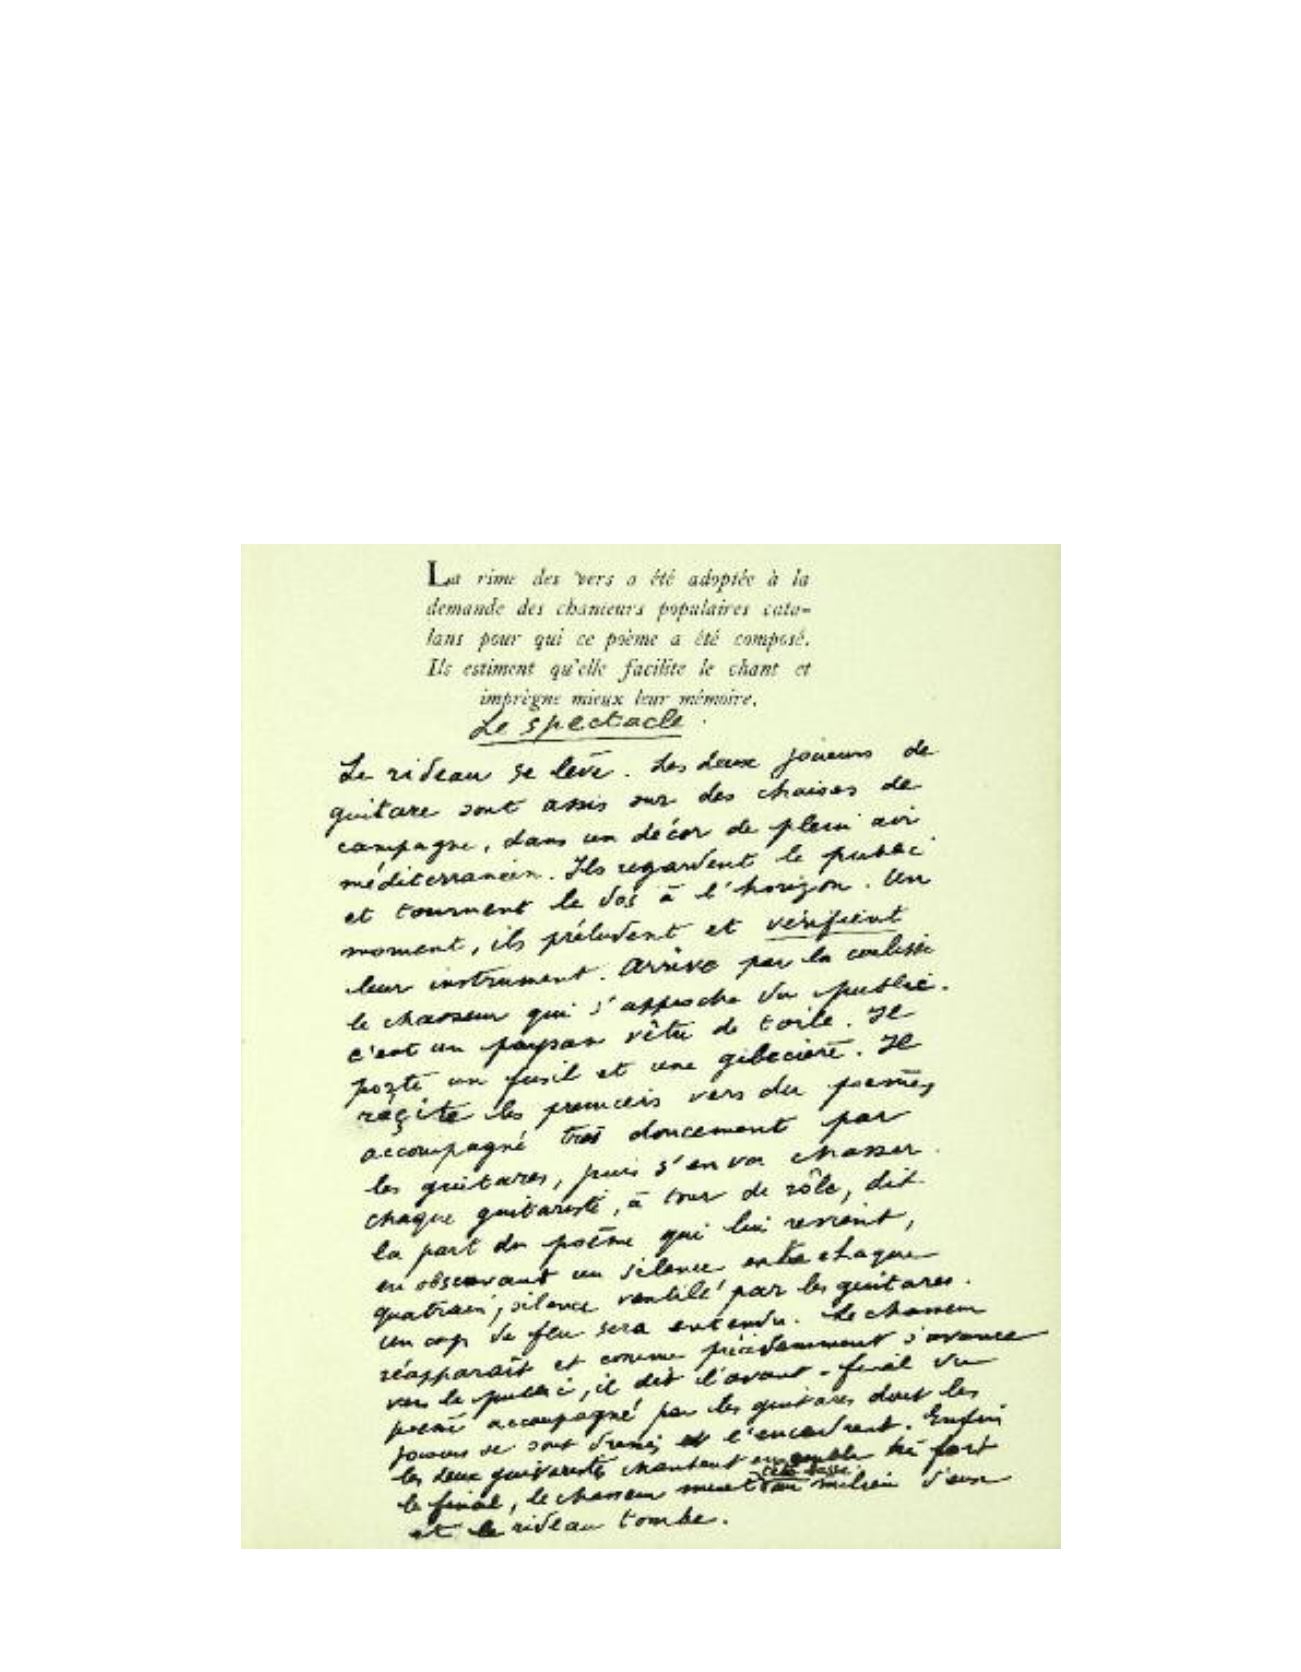 La rime des vers a été adoptée à la
demande des chanteurs populaires cata-
lans pour qui ce poème a été composé.
Ils estiment qu'elle facilite le chant et
imprègne mieux leur mémoire.
Le spectacle.
Le rideau se lève. Les deux joueurs de
guitare sont assis sur des chaises de
campagne, dans un décor de plein air
méditerranéen. Ils regardent le public
et tournent le dos à l'horizon. Un
moment, ils préludent et vérifient
leur instrument. Arrive par la coulisse
le chasseur qui s'approche du public.
C'est un paysan vêtu de toile. Il
porte un fusil et une gibecière. Il
récite les premiers vers du poème,
accompagné très doucement par
les guitares, puis s'en va chasser.
Chaque guitariste, à tour de rôle, dit
la part du poème qui lui revient,
en observant un silence entre chaque
quatrain, silence ventilé par les guitares.
Un coup de feu sera entendu. Le chasseur
réapparaît et comme précédemment s'avance
vers le public, il dit l'avant-final du
poème accompagné par les guitares dont les
joueurs se sont dressés et l'encadrent. Enfin
les deux guitaristes chantent ensemble très fort
le final, le chasseur muet tête basse au milieu d'eux
et le rideau tombe.